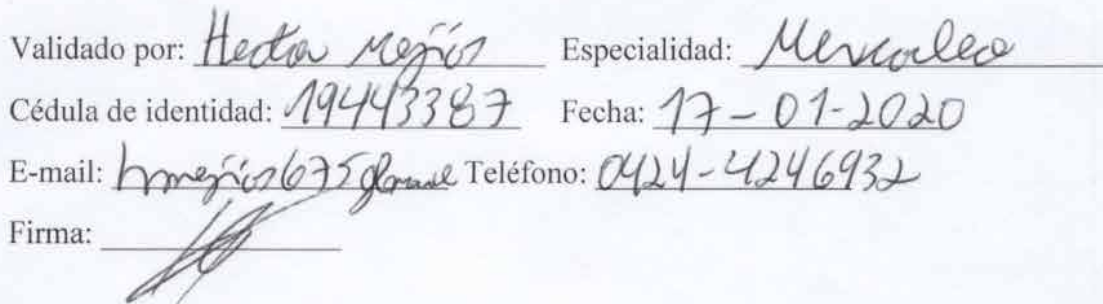 Validado por: Hector Mejías Especialidad: Mercadeo
Cédula de identidad: 19443387 Fecha: 17-01-2020
E-mail: Teléfono: 0424-4246932
Firma: